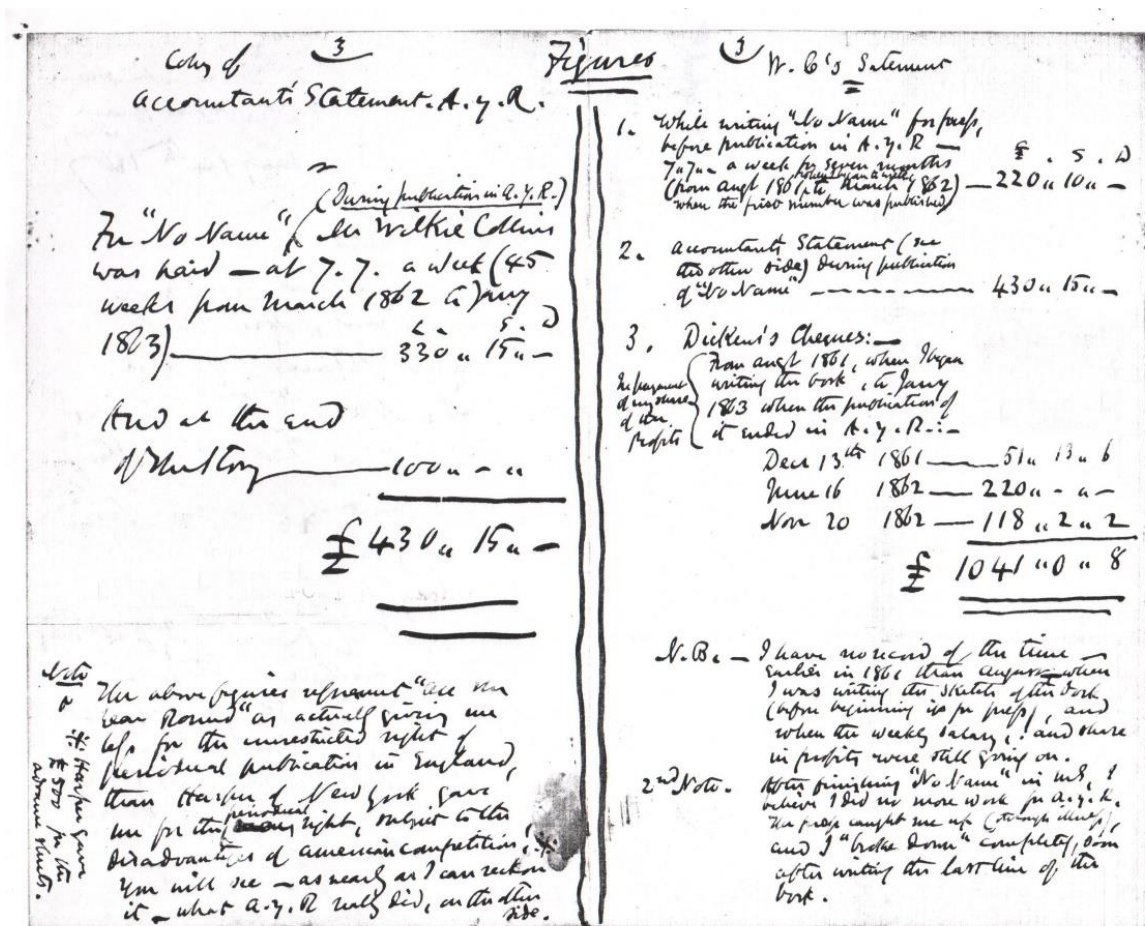 Figures
3
Copy of
Accountant's Statement. A.Y.R.
(During publication in A.Y.R.)
For "No Name", Mr Wilkie Collins
was paid — at 7.7. a week (45
weeks from March 1862 to Jany
1863) £ . S . D
330 " 15 " —
And at the end
of the Story — 100 " - "
£ 430 " 15 " —
Note
The above figures represent "All the
Year Round" as actually giving me
less for the unrestricted right of
periodical publication in England,
than Harper of New York gave
me for the periodical right, subject to the
disadvantages of American competition. *
You will see — as nearly as I can reckon
it — what A.Y.R really did, on the other
side.
* Harper gave
£500 for the
advance sheets.
3
W. C's Satement
1. While writing "No Name" for press,
before publication in A.Y.R —
7 " 7 " — a week for seven months
(from Augt 1861, to March 1862)
when the first number was published)
£ . S . D
— 220 " 10 " —
2. Accountant's Statement (see
the other side) During publication
of "No Name" — 430 " 15 " —
3. Dickens's Cheques: —
In payment
of my share
of the
Profits
From Augt 1861, when I began
writing the book, to Jany
1863 when the publication of
it ended in A.Y.R.: —
Decr 13th 1861 — 51 " 13 " 6
June 16 1862 — 220 " - " -
Nov 20 1862 — 118 " 2 " 2
£ 1041 " 0 " 8
N.B. — I have no record of the time —
Earlier in 1861 than August — when
I was writing the sketch of the book
(before beginning it for press), and
when the weekly salary, and share
in profits were still going on.
2nd Note. After finishing "No Name" in MS, I
believe I did no more work for A.Y.R.
The press caught me up (through illness),
and I "broke down" completely, soon
after writing the last line of the
book.